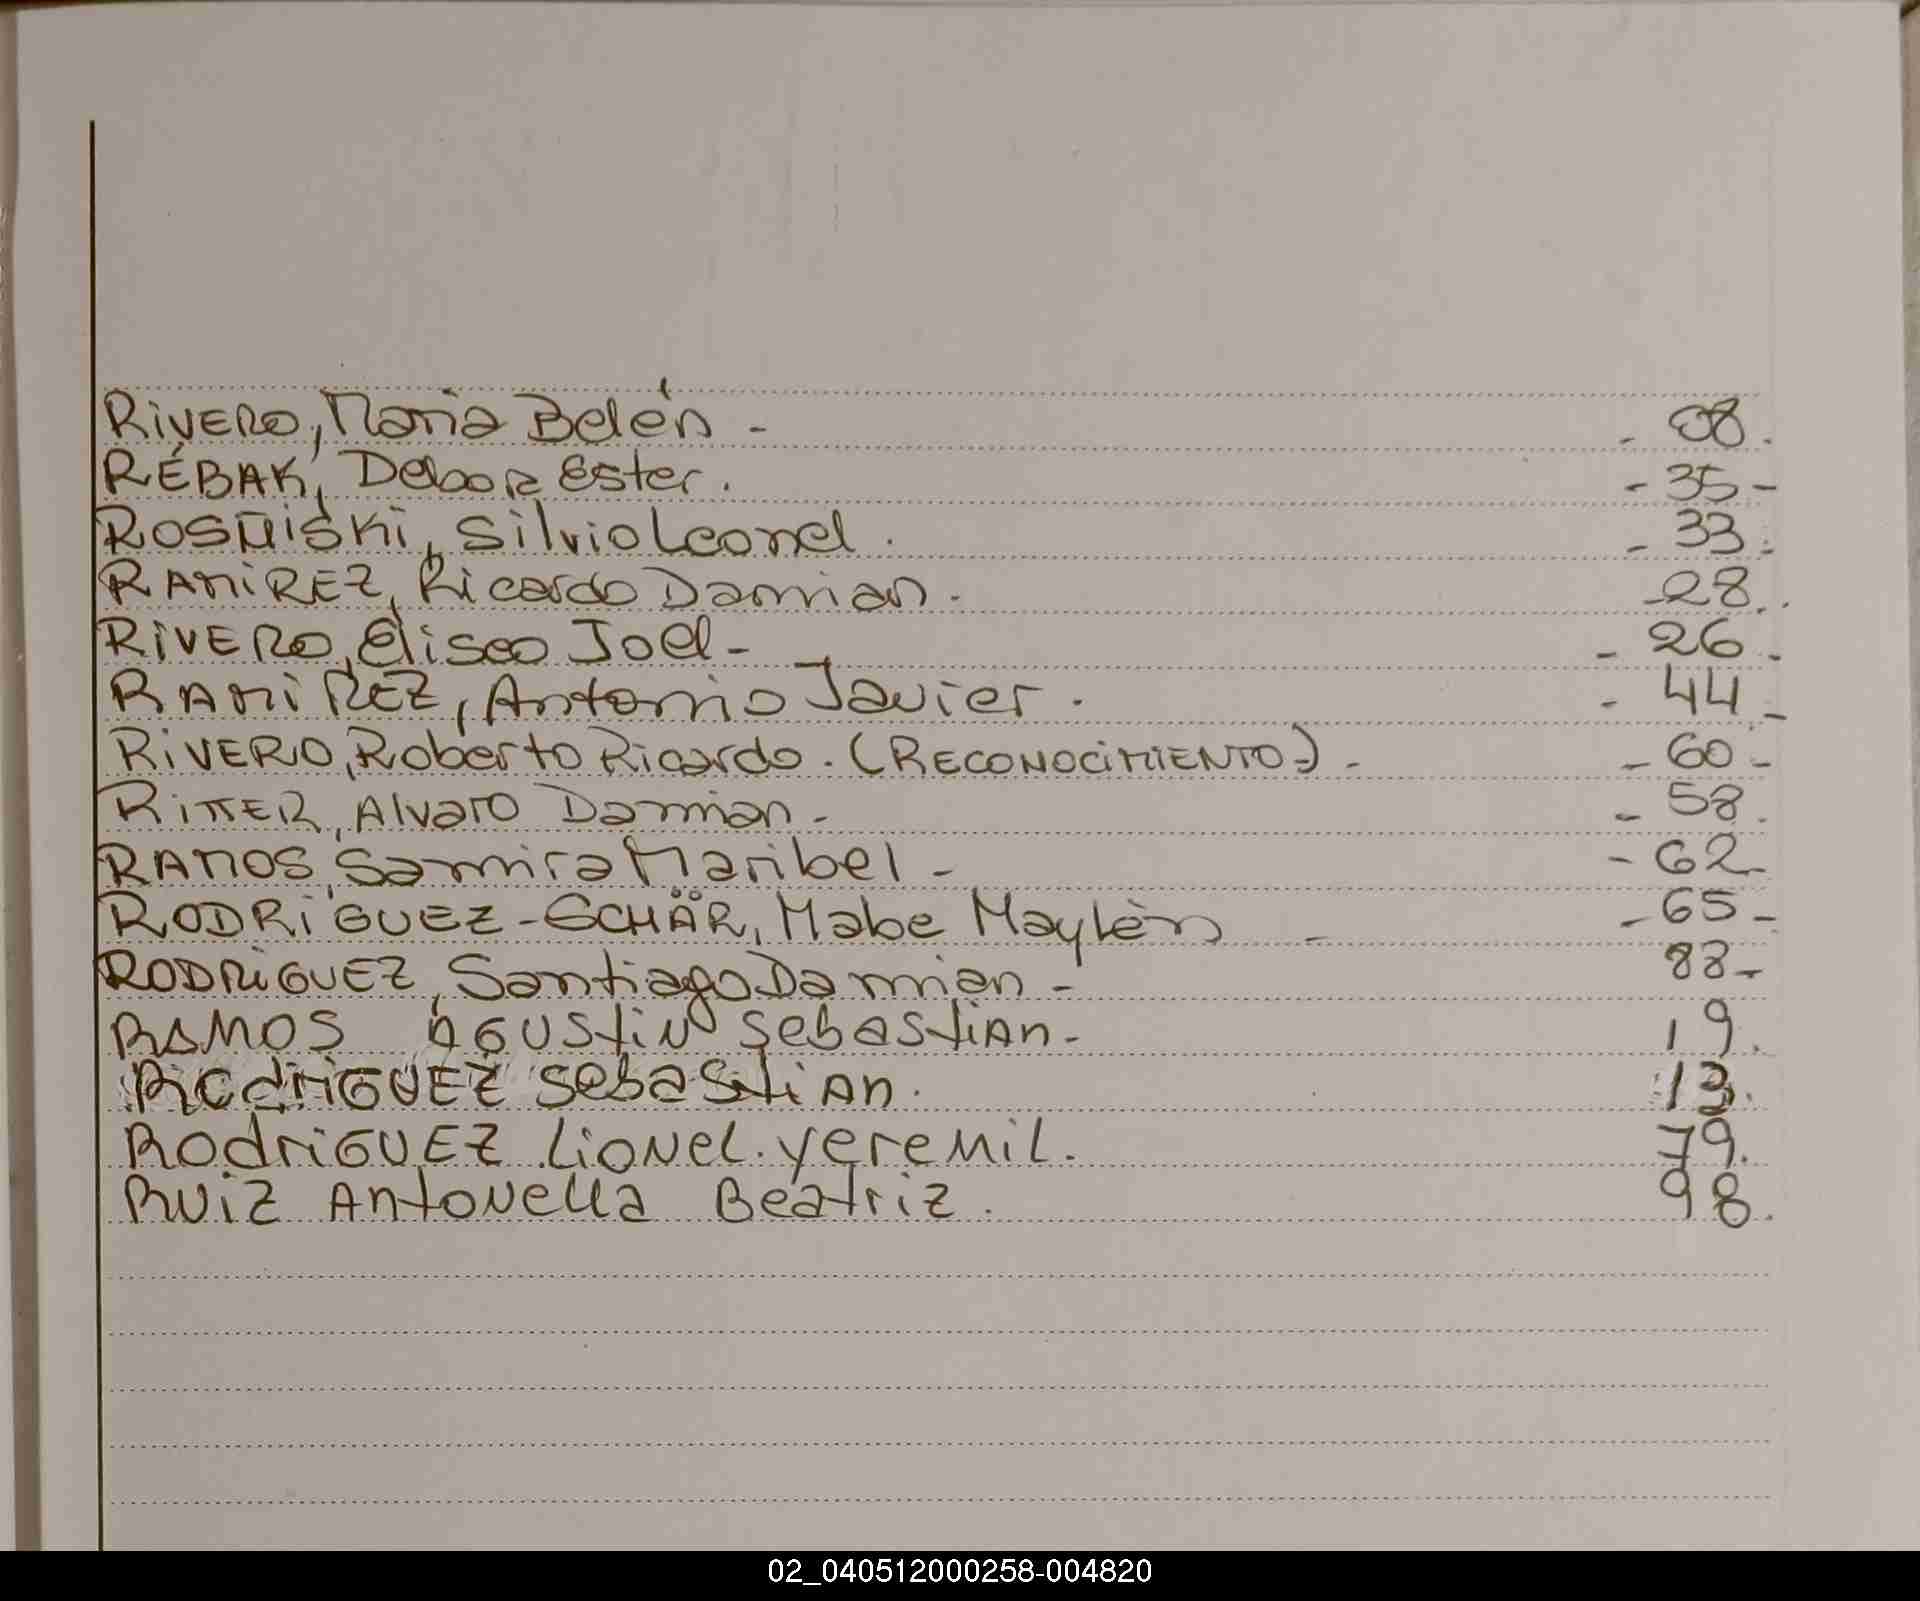 RIVERO, Maria Belén - - 08.
RÉBAK, Debor Ester. - 35 -
ROSMISKI, Silvio Leonel. - 33.
RAMIREZ, Ricardo Damian. - 28.
RIVERO, Eliseo Joel - - 26.
RAMIREZ, Antonio Javier. - 44 -
RIVERO, Roberto Ricardo. (RECONOCIMIENTO.) - - 60 -
RITTER, Alvaro Damian. - 58.
RAMOS, Samira Maribel - - 62
RODRIGUEZ-SCHÄR, Mabe Maylèn - - 65 -
RODRIGUEZ, Santiago Damian - 88 -
RAMOS AGUSTIN SEBASTIAN - 19.
RODRIGUEZ SEBASTIAN. 13.
RODRIGUEZ LIONEL. YEREMIL. 79.
RUIZ ANTONELLA BEATRIZ. 98.
02_040512000258-004820